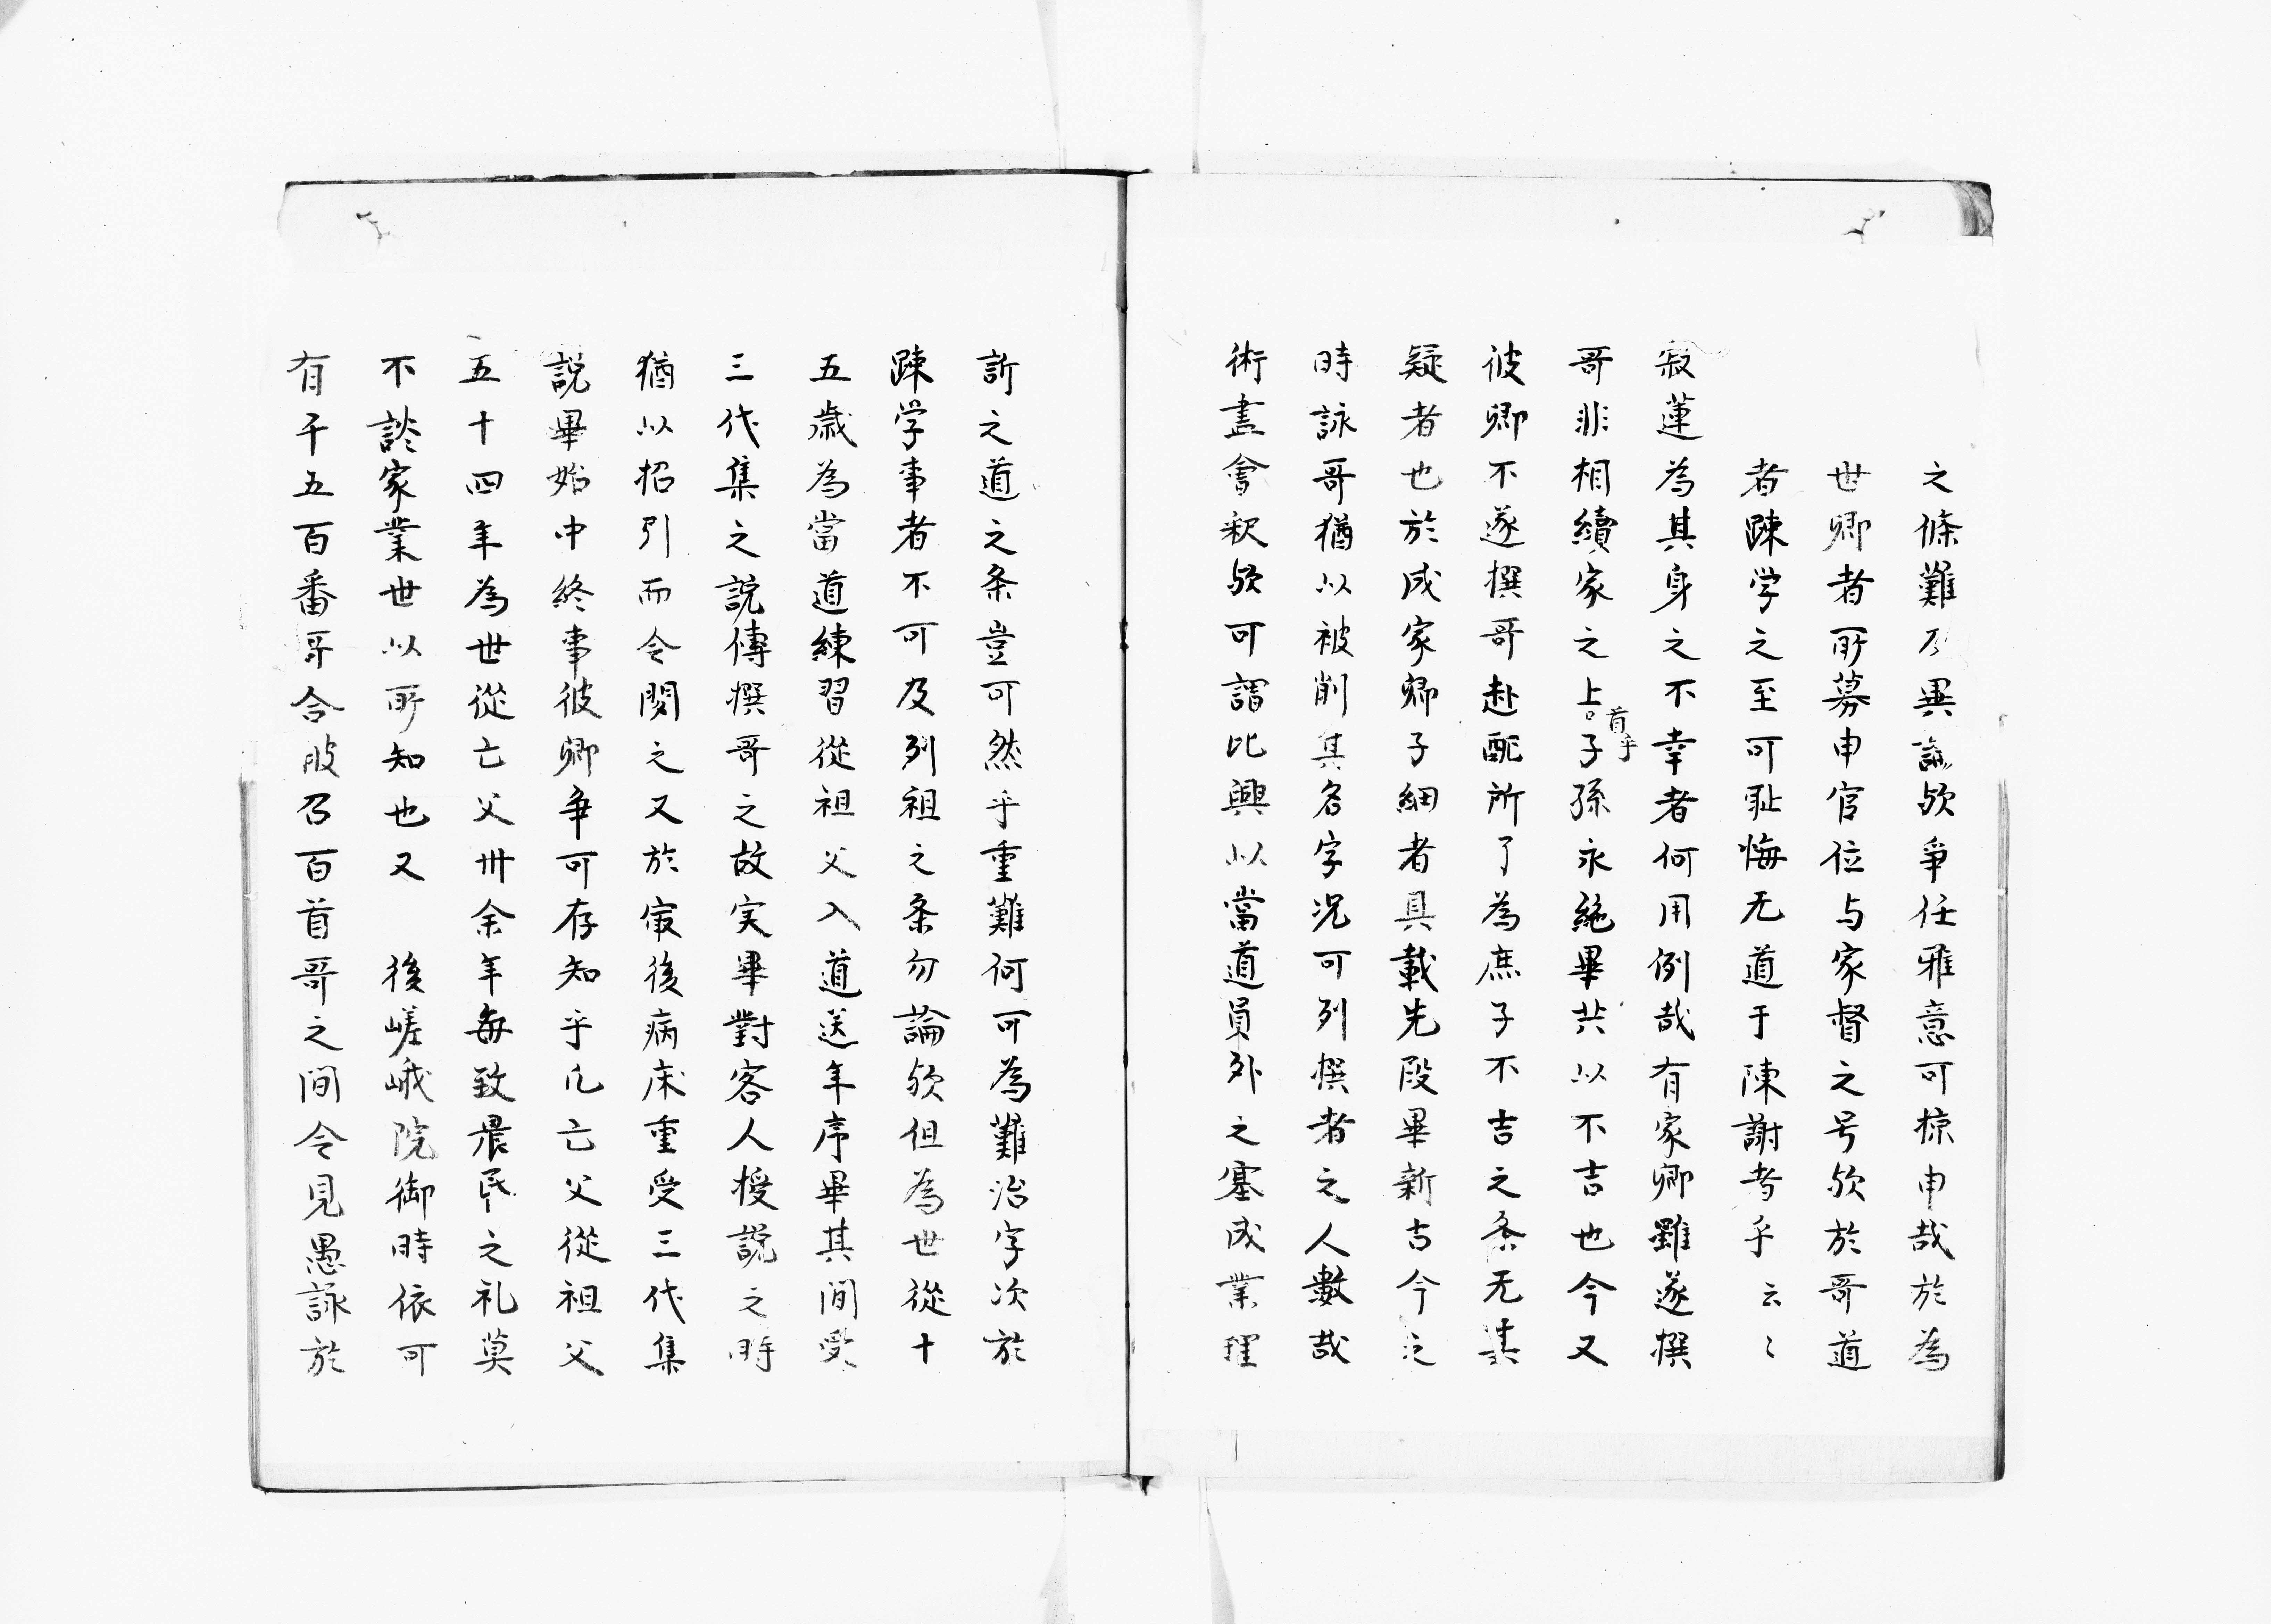 之條難及異論歟争任雅意可掠申哉於為
世卿者所募申官位与家督之号歟於哥道
者踈学之至可耻悔无道于陳謝者乎云〻
寂蓮為其身之不幸者何用例哉有家卿雖遂撰
哥非相續家之上子孫永絶畢共以不吉也今又
首乎
彼卿不遂撰哥赴配所了為庶子不吉之条无其
疑者也於成家卿子細者具載先段畢新古今之
時詠哥猶以被削其名字况可列撰者之人數哉
術盡會釈歟可謂比興以當道員外之塞成業稽
訢之道之条豈可然乎重難何可為難治字次於
踈学事者不可及列祖之条勿論歟但為世從十
五歳為當道練習從祖父入道送年序畢其間受
三代集之說傳撰哥之故実畢對客人授說之時
猶以招引而令聞之又於寂後病床重受三代集
說畢始中終事彼卿争可存知乎凡亡父從祖父
五十四年為世從亡父卅余年毎致晨昏之礼莫
不談家業世以所知也又　後嵯峨院御時依可
有千五百番哥合被召百首哥之間令見愚詠於